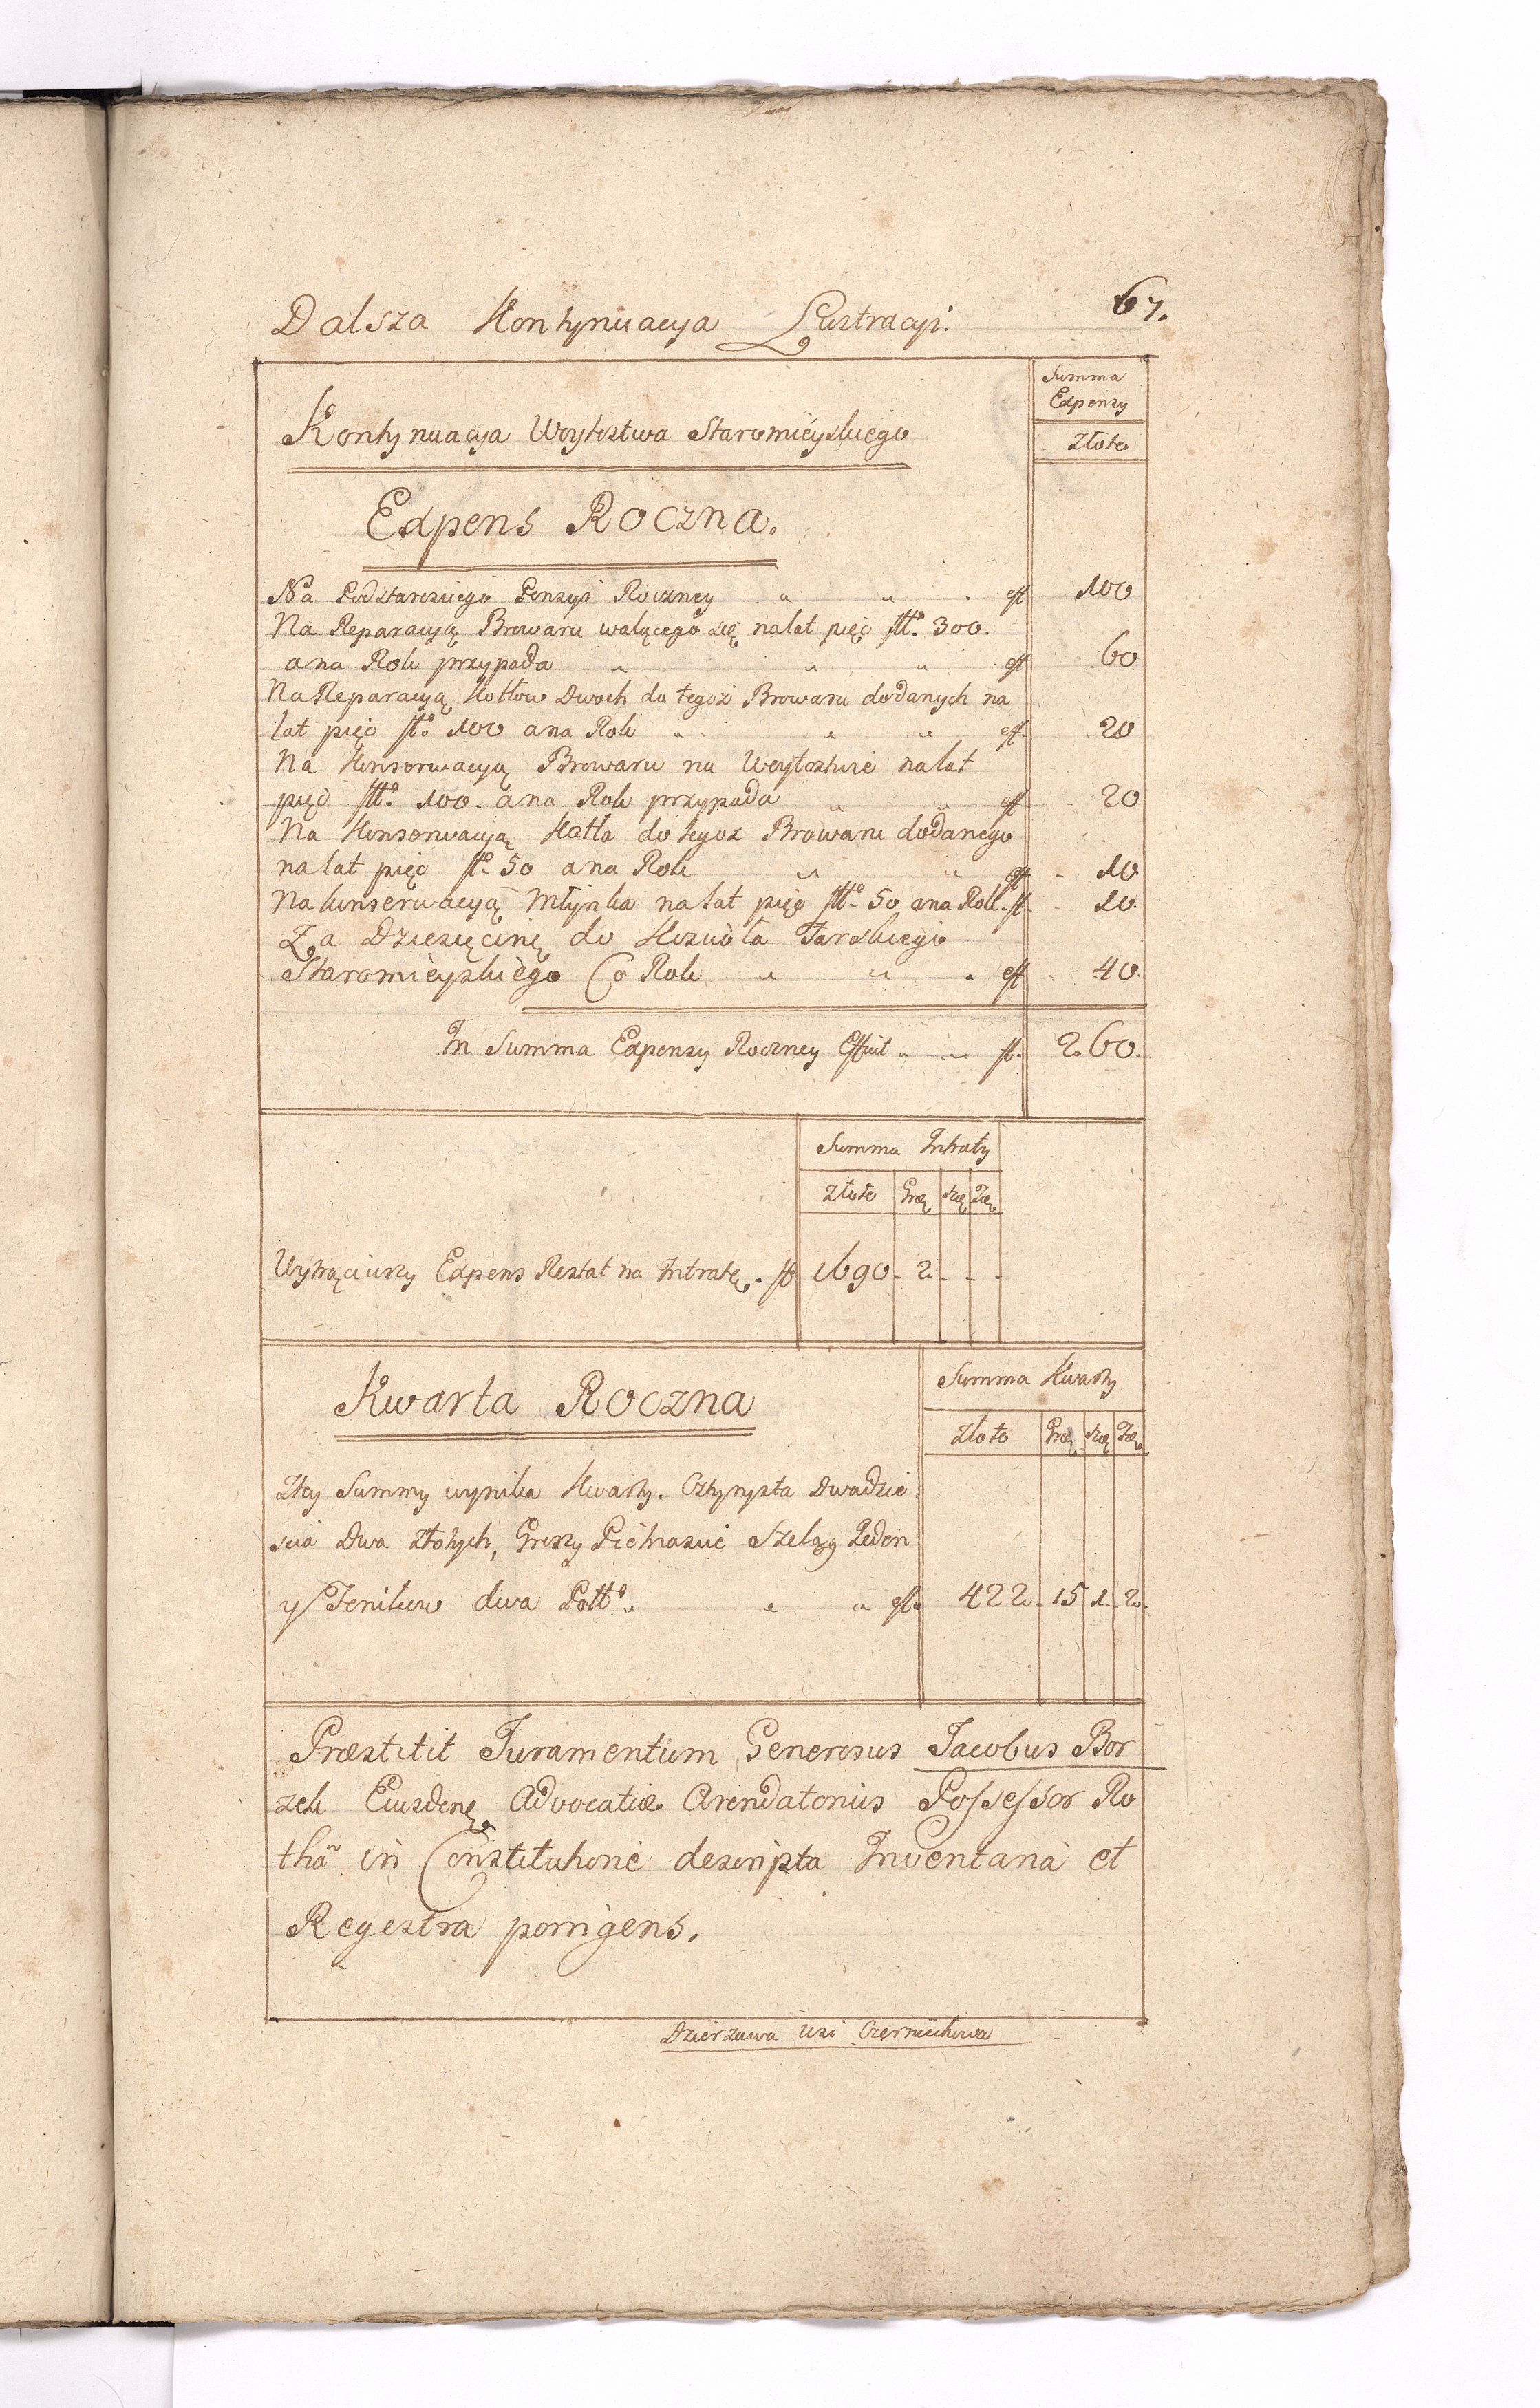 Dalsza Kontynuacya Lustracyi. 67.
Summa
Expensy
Złote
Kontynuacya Woytostwa Staromieyskiego
Expens Roczna.
Na Podstarosciego Pensyi Roczney " " " 100
Na Reparacyą Browaru walącego się na lat pięć 300.
a na Rok przypada " " " 60
Na Reparacyą Kotłow Dwoch do tegoż Browaru dodanych na
lat pięć 100 a na Rok " " " 20
Na Konserwacyą Browaru na Woytostwie na lat
pięć 100. a na Rok przypada " " 20
Na Konserwacyą Kotła do tegoz Browaru dodanego
na lat pięć 50 a na Rok " " 10
Na kunserwacyą Młynka na lat pięć 50 a na Rok. 10.
Za Dziesięcinę do Koscioła Farskiego
Staromieyskiego Co Rok " " " 40.
In Summa Expensy Roczney Efficit " " fl. 260.
Summa Intraty
Złote
Wytrąciwszy Expens Restat na Intratę. fl 1690. 2. - -
Kwarta Roczna
Summa Kwarty
Złote
Ztey Summy wynika Kwarty. Cztyrysta Dwadzie
scia Dwa złotych, Groszy Pietnascie Szeląg Jeden
y Fenikow dwa 422. 15 1. 2.
Præstitit Juramentum Generosus Jacobus Bor
zek Eiusdem Advocatiæ Arendatorius Possessor Ro
tha in Constitutione descripta Inventaria et
Regestra porrigens.
Dzierzawa Wsi Czerniechowa